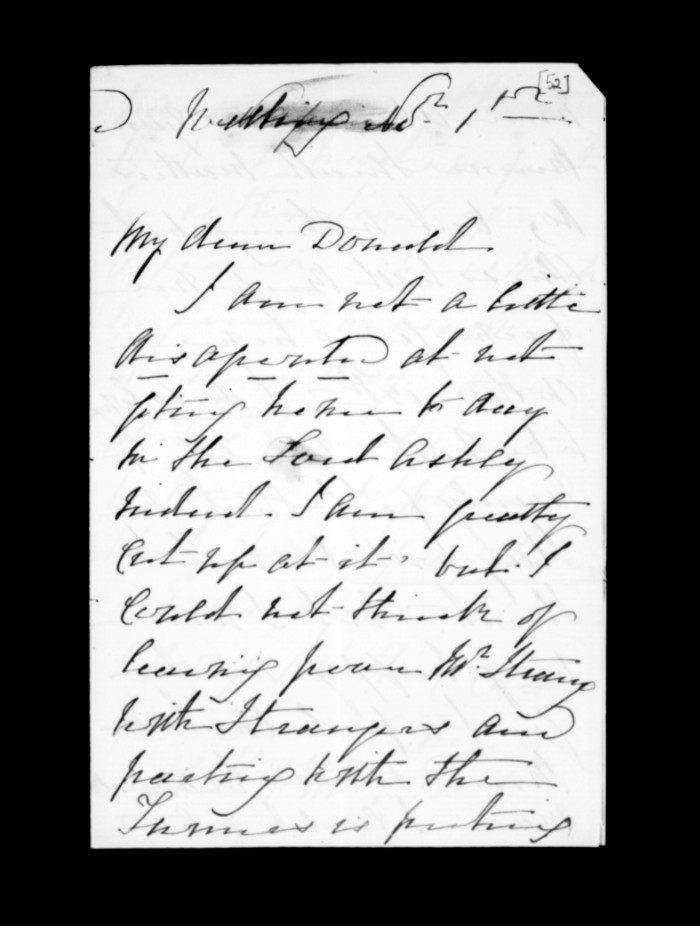 [52]
Novbr 1st
My dear Donald
I am not a little
disapointed at not
geting home to day
in the Lord Ashley
indeed. I am greatly
cut up at it, but I
could not think of
leaving poor Mr. Strang
with Strangers and
parting with the
is puting